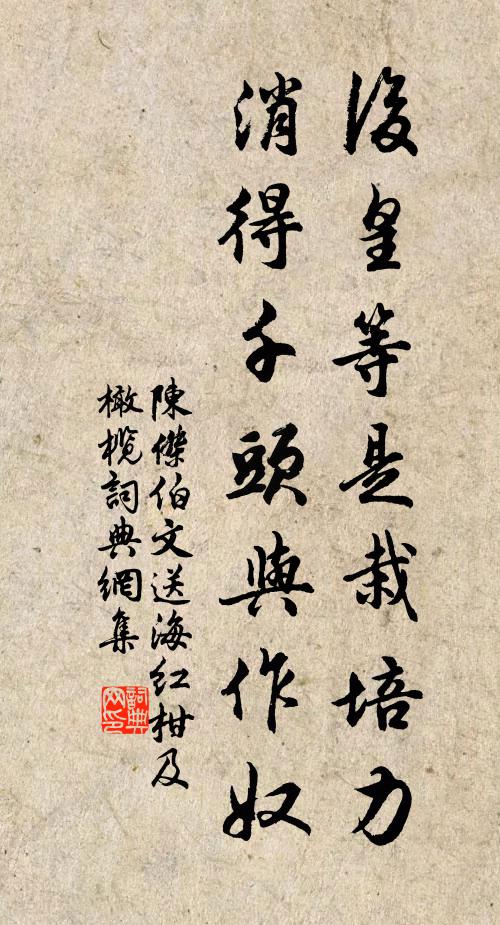 後皇等是栽培力
消得千頭與作奴
陳傑伯文送海红柑及
橄榄詞典網集
詞典
网印